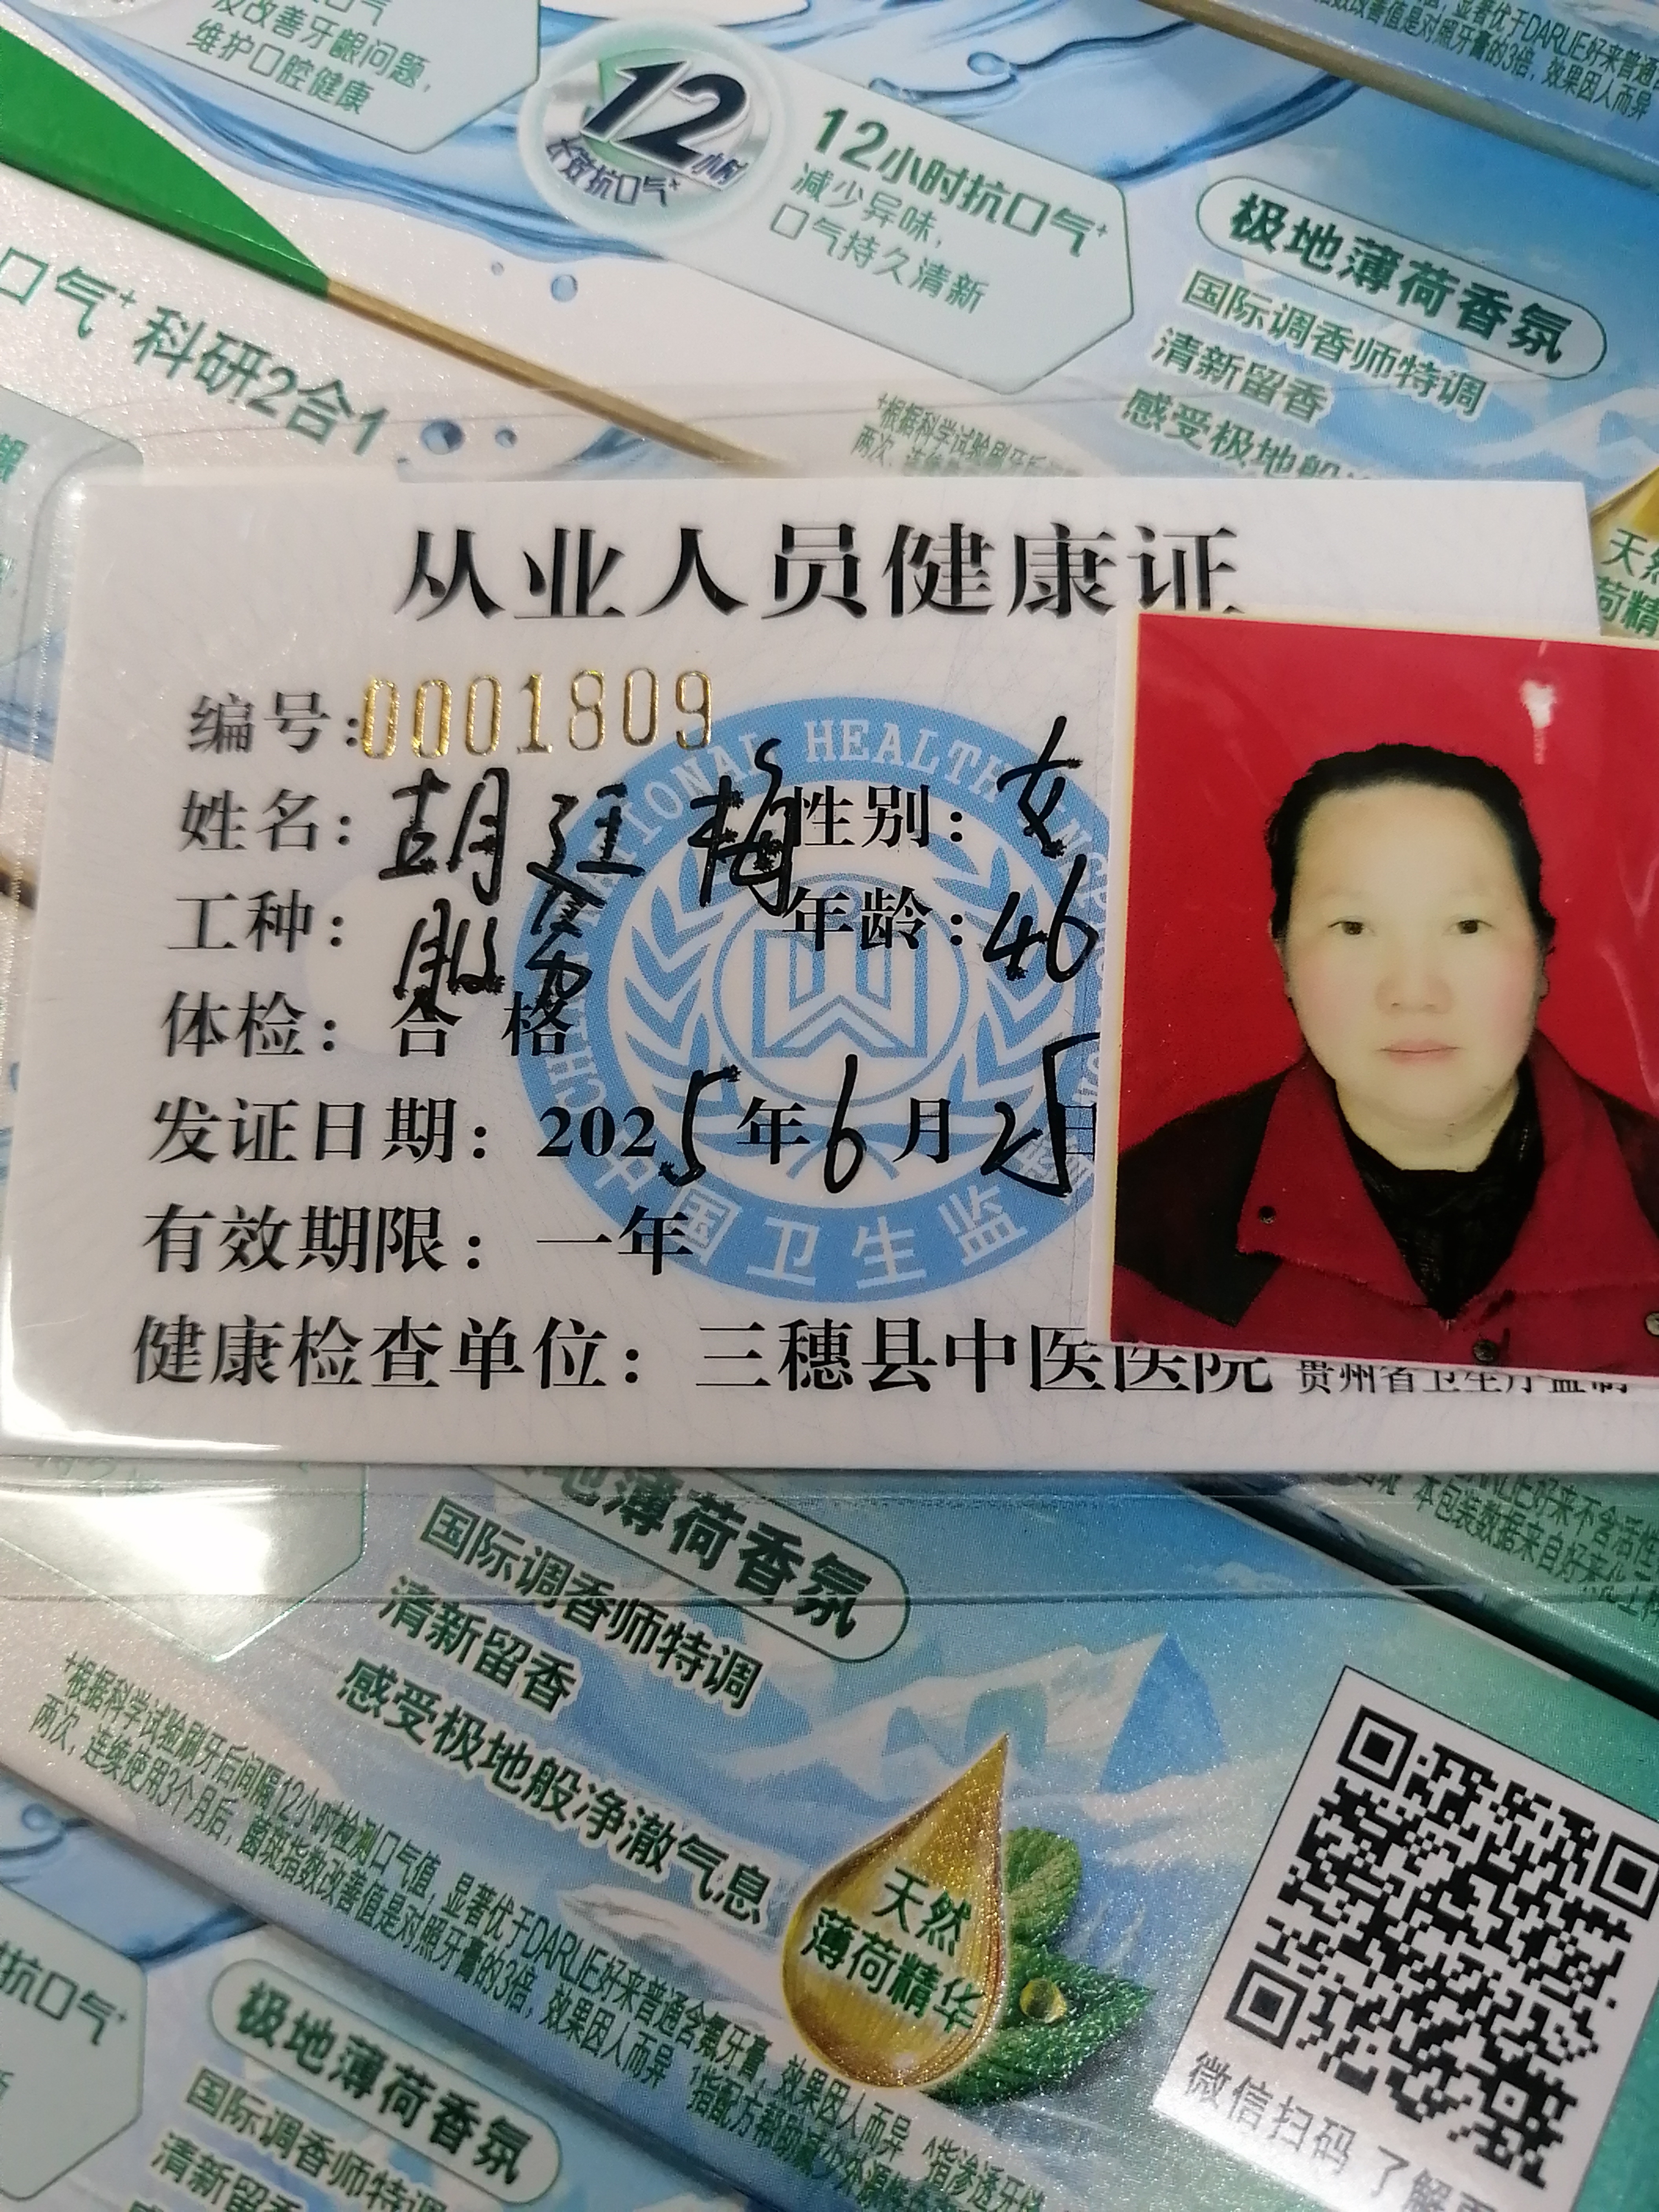 及改善牙龈问题，
维护口腔健康
12小时
长效抗口气+
12小时抗口气+
减少异味，
口气持久清新
极地薄荷香氛
国际调香师特调
清新留香
感受极地般
显著优于DARLIE好来普通
指数改善值是对照牙膏的3倍，效果因人而异
口气+科研2合1
+根据科学试验刷牙后
两次，连续
天然
从业人员健康证
编号:0001809
姓名：胡廷梅 性别：女
工种：服务 年龄：46
体检：合格
发证日期：2025年6月25日
有效期限：一年
健康检查单位：三穗县中医医院 贵州省卫生厅监制
CHINA NATIONAL HEALTH INSPECTION
中国卫生监督
地薄荷香氛
国际调香师特调
清新留香
感受极地般净澈气息
+根据科学试验刷牙后间隔12小时检测口气值，显著优于DARLIE好来普通含氟牙膏，效果因人而异
两次，连续使用3个月后，菌斑指数改善值是对照牙膏的3倍，效果因人而异
天然
薄荷精华
DARLIE好来不含活性
本包装数据来自好来化工
微信扫码 了解
抗口气+
极地薄荷香氛
国际调香师特调
清新留香